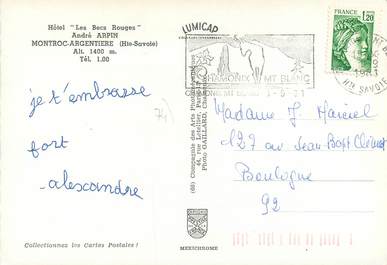 Hôtel "Les Becs Rouges"
André ARPIN
MONTROC-ARGENTIERE (Hte-Savoie)
Alt. 1400 m.
Tél. 1.00
je t'embrasse
fort
alexandre
Collectionnez les Cartes Postales !
LUMICAP
CHAMONIX MT BLANC
FRANCE
1,20
HTE SAVOIE
(dé) Compagnie des Arts Photomécaniques
44, rue Letellier, Paris-15
Photo GAILLARD,
MEXICHROME
Madame J Marciel
127 av Jean-Bapt Clément
Boulogne
92